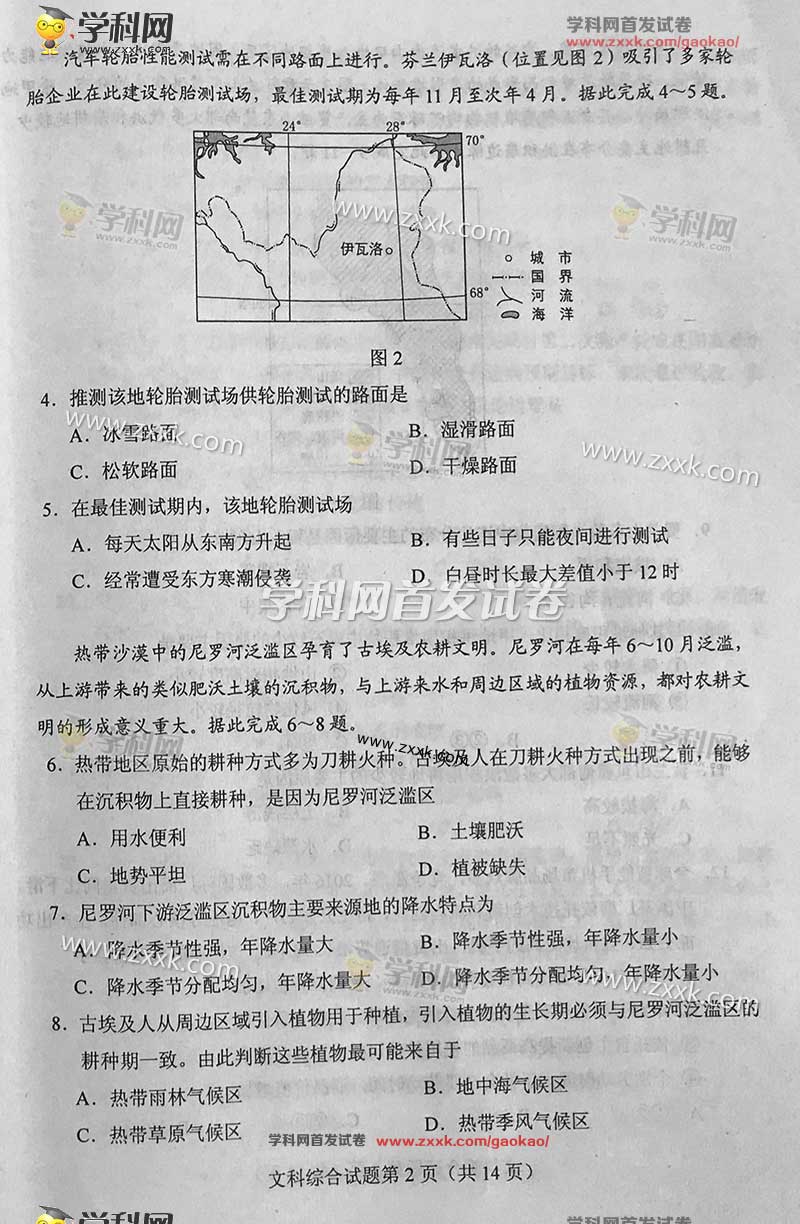 学科网 学科网首发试卷 学科网
www.zxxk.com www.zxxk.com/gaokao/ www.zxxk.com
汽车轮胎性能测试需在不同路面上进行。芬兰伊瓦洛（位置见图 2）吸引了多家轮
胎企业在此建设轮胎测试场，最佳测试期为每年 11 月至次年 4 月。据此完成 4～5 题。
24° 28°
70°
学科网 www.zxxk.com 学科网
www.zxxk.com www.zxxk.com
伊瓦洛
城 市
国 界
68°
河 流
海 洋
图 2
4．推测该地轮胎测试场供轮胎测试的路面是
A．冰雪路面 B．湿滑路面
www.zxxk.com 学科网 www.zxxk.com
www.zxxk.com
C．松软路面 D．干燥路面
5．在最佳测试期内，该地轮胎测试场
A．每天太阳从东南方升起 B．有些日子只能夜间进行测试
C．经常遭受东方寒潮侵袭 D．白昼时长最大差值小于 12 时
学科网首发试卷
热带沙漠中的尼罗河泛滥区孕育了古埃及农耕文明。尼罗河在每年 6～10 月泛滥，
从上游带来的类似肥沃土壤的沉积物，与上游来水和周边区域的植物资源，都对农耕文
明的形成意义重大。据此完成 6～8 题。
学科网 www.zxxk.com 学科网
www.zxxk.com www.zxxk.com
6．热带地区原始的耕种方式多为刀耕火种。古埃及人在刀耕火种方式出现之前，能够
在沉积物上直接耕种，是因为尼罗河泛滥区
A．用水便利 B．土壤肥沃
C．地势平坦 D．植被缺失
7．尼罗河下游泛滥区沉积物主要来源地的降水特点为
A．降水季节性强，年降水量大 B．降水季节性强，年降水量小
www.zxxk.com 学科网 www.zxxk.com
www.zxxk.com
C．降水季节分配均匀，年降水量大 D．降水季节分配均匀，年降水量小
8．古埃及人从周边区域引入植物用于种植，引入植物的生长期必须与尼罗河泛滥区的
耕种期一致。由此判断这些植物最可能来自于
A．热带雨林气候区 B．地中海气候区
C．热带草原气候区 D．热带季风气候区
学科网首发试卷 www.zxxk.com/gaokao/
文科综合试题第 2 页（共 14 页）
学科网 学科网首发试卷 学科网